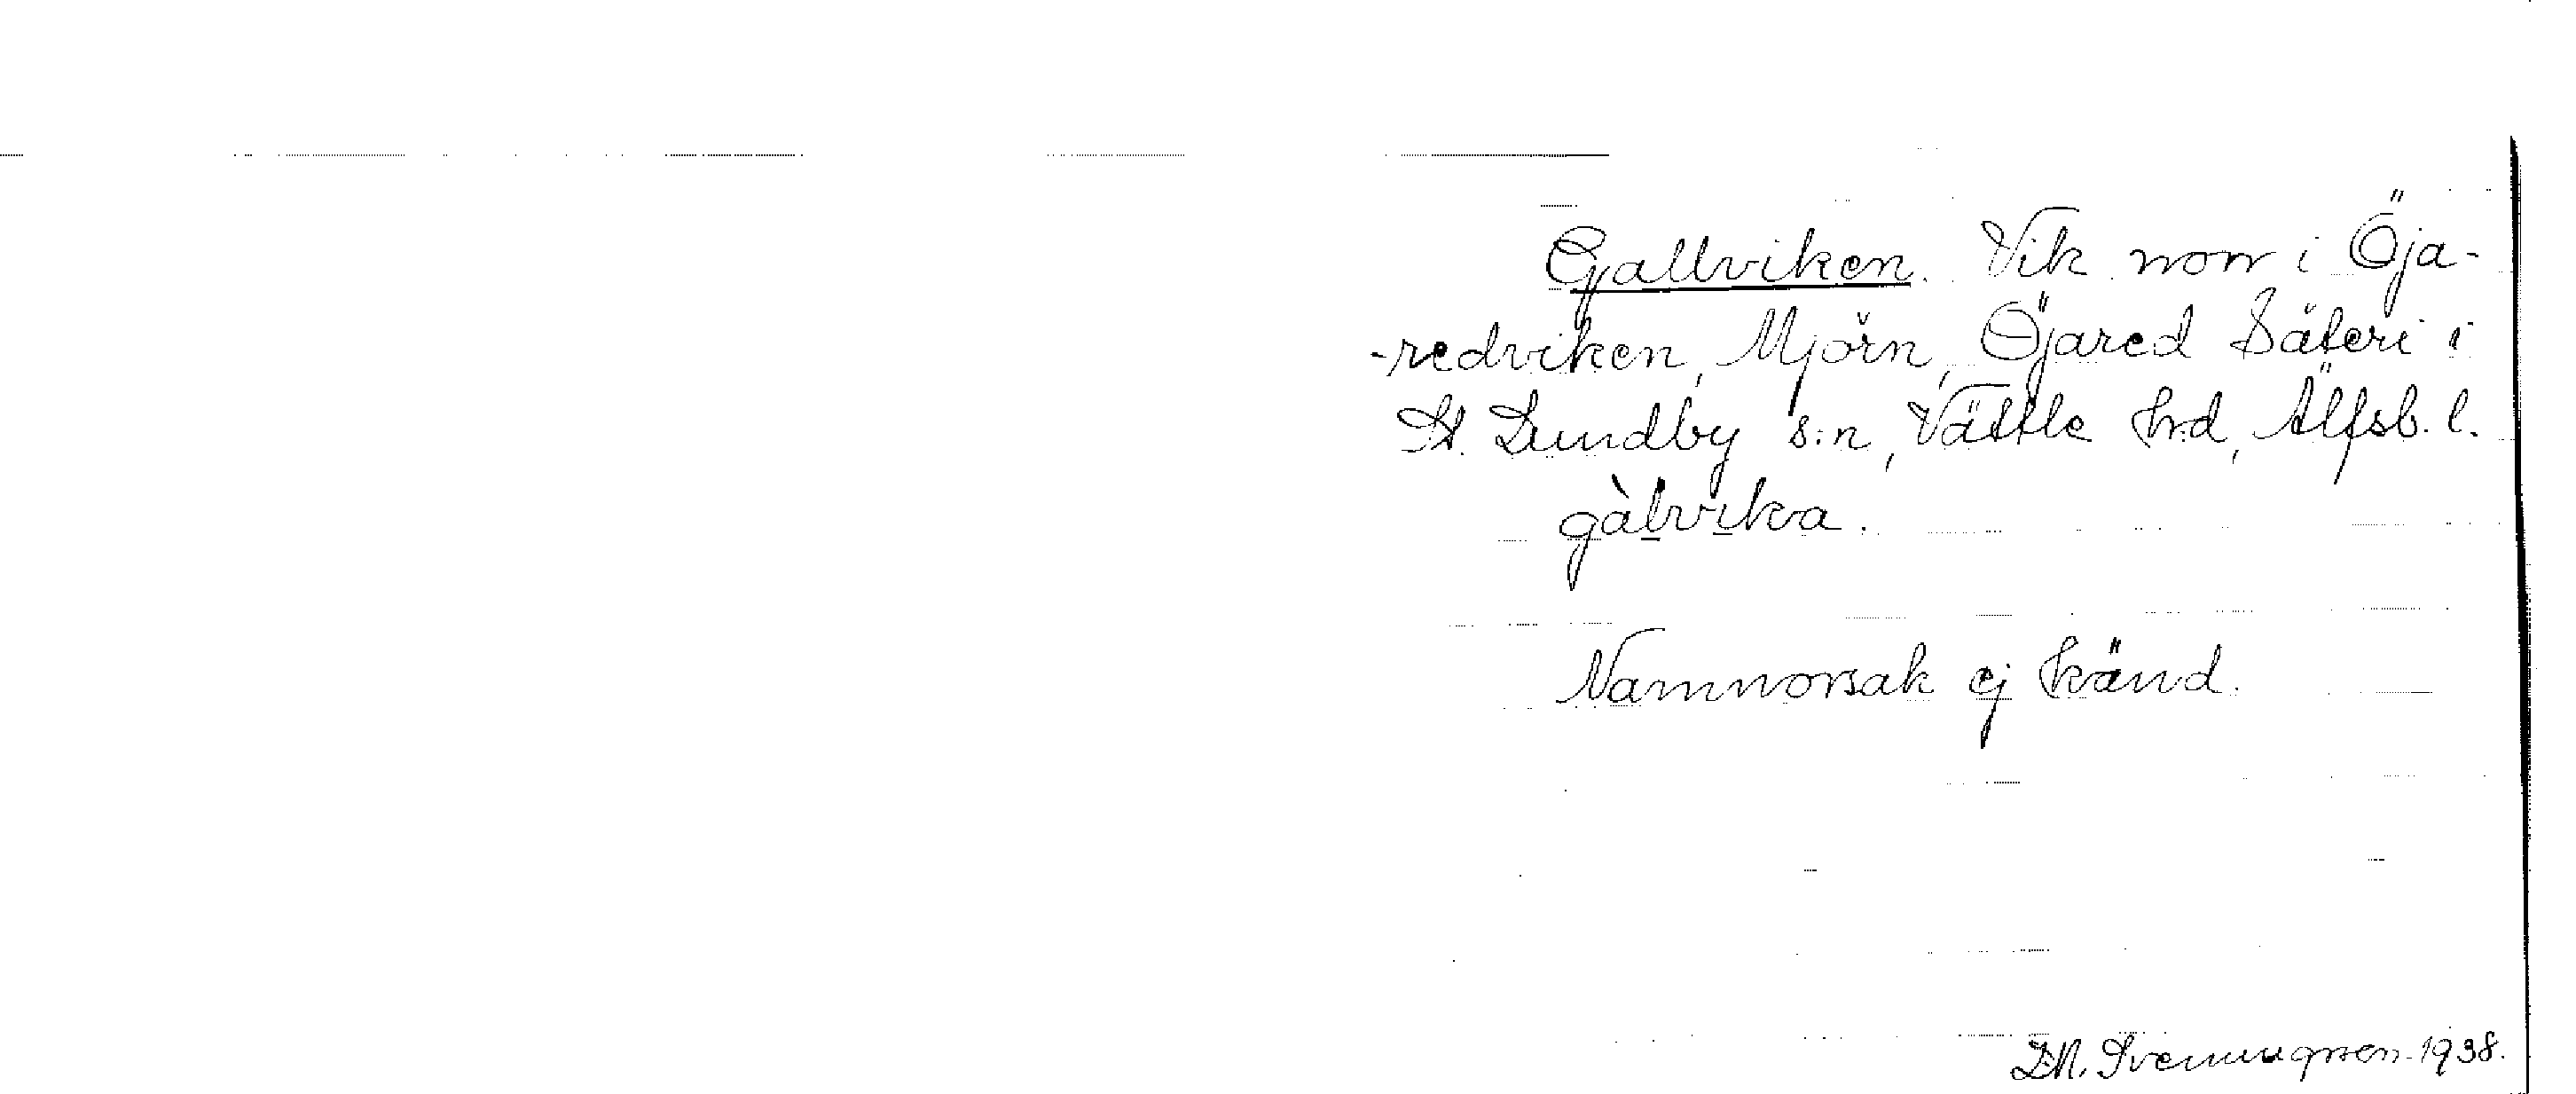 Gallviken. Vik norr i Öja-
-redviken, Mjörn, Öjared Säteri i
St. Lundby s:n, Vättle hrd, Älfsb. l.
gàlvika.
Namnorsak ej känd.
1938.